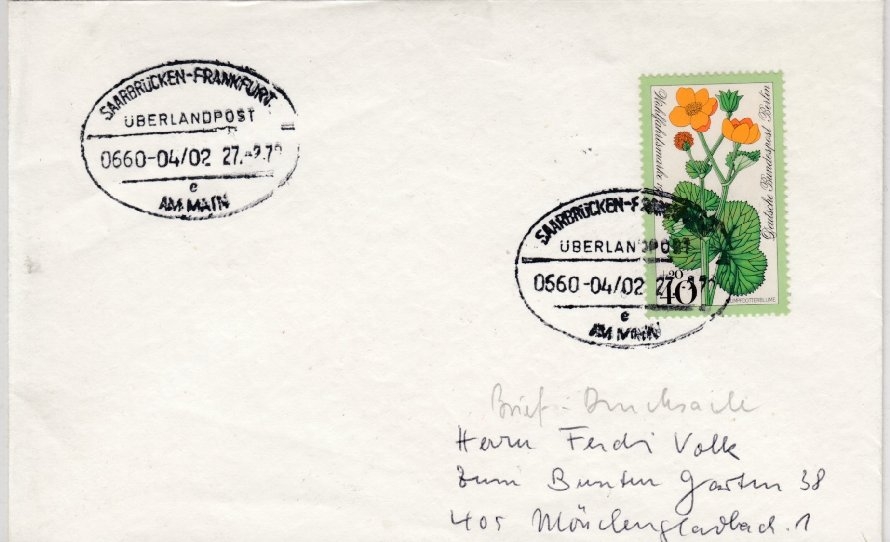 SAARBRÜCKEN-FRANKFURT
ÜBERLANDPOST
0660-04/02 27.
e
AM MAIN
Wohlfahrtsmarke
Deutsche Bundespost Berlin
+20
40
SUMPFDOTTERBLUME
SAARBRÜCKEN-
ÜBERLANDPOST
0660-04/02 27.
e
AM MAIN
Brief-Drucksache
Herrn Ferdi Volk
Zum Bunten Garten 38
405 Mönchengladbach. 1